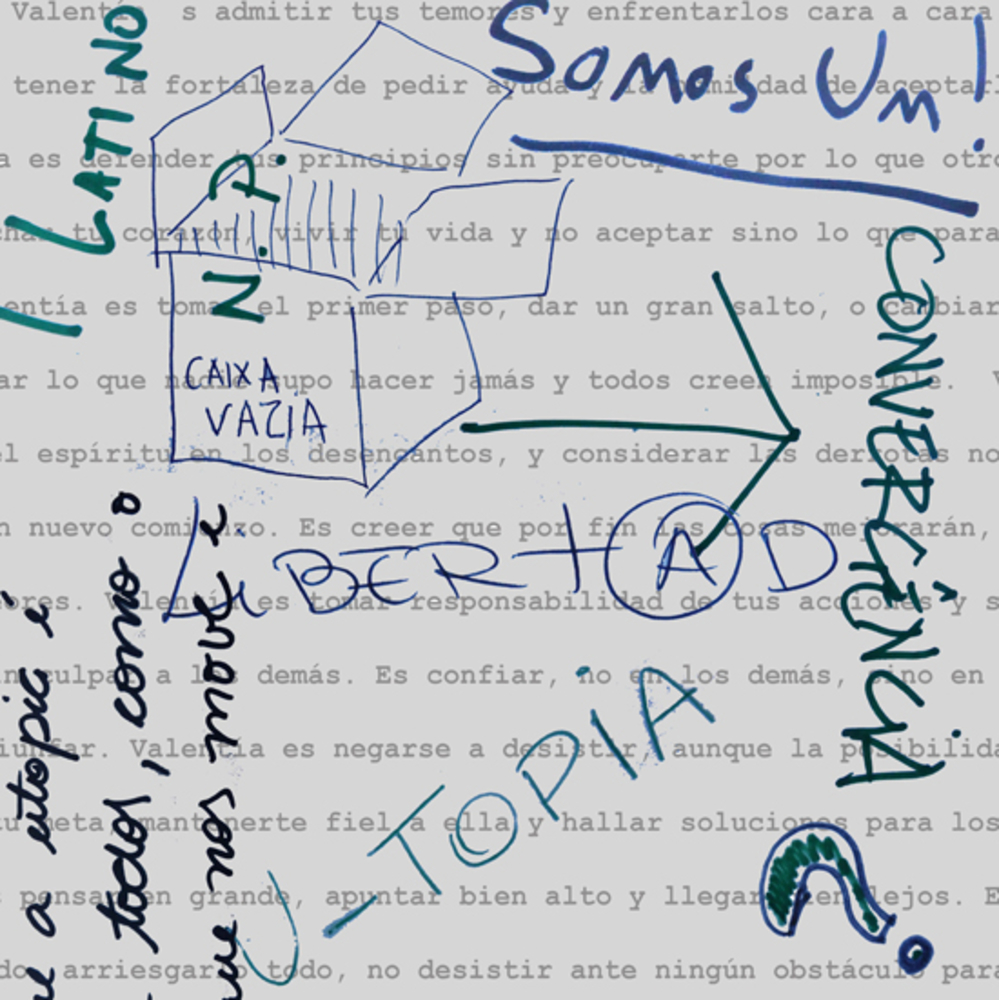 Valentí s admitir tus temores y enfrentarlos cara a cara
tener la fortaleza de pedir ayuda y la humildad de aceptar
a es defender tus principios sin preocuparte por lo que otro
char tu corazón, vivir tu vida y no aceptar sino lo que para
entía es tomar el primer paso, dar un gran salto, o cambiar
ar lo que nadie supo hacer jamás y todos creen imposible. V
el espíritu en los desencantos, y considerar las derrotas no
n nuevo comienzo. Es creer que por fin las cosas mejorarán,
ores. Valentía es tomar responsabilidad de tus acciones y s
n culpar a los demás. Es confiar, no en los demás, sino en
iunfar. Valentía es negarse a desistir, aunque la posibilida
tu meta, mantenerte fiel a ella y hallar soluciones para los
s pensar en grande, apuntar bien alto y llegar bien lejos. E
do arriesgarlo todo, no desistir ante ningún obstáculo para
LATINO
SOMOS UM!
N.P.
CAIXA
VAZIA
CONVERGÊNCIA
LiBERTAD
U-TOPIA
ue a utopic é
todos, como o
que nos move e
?